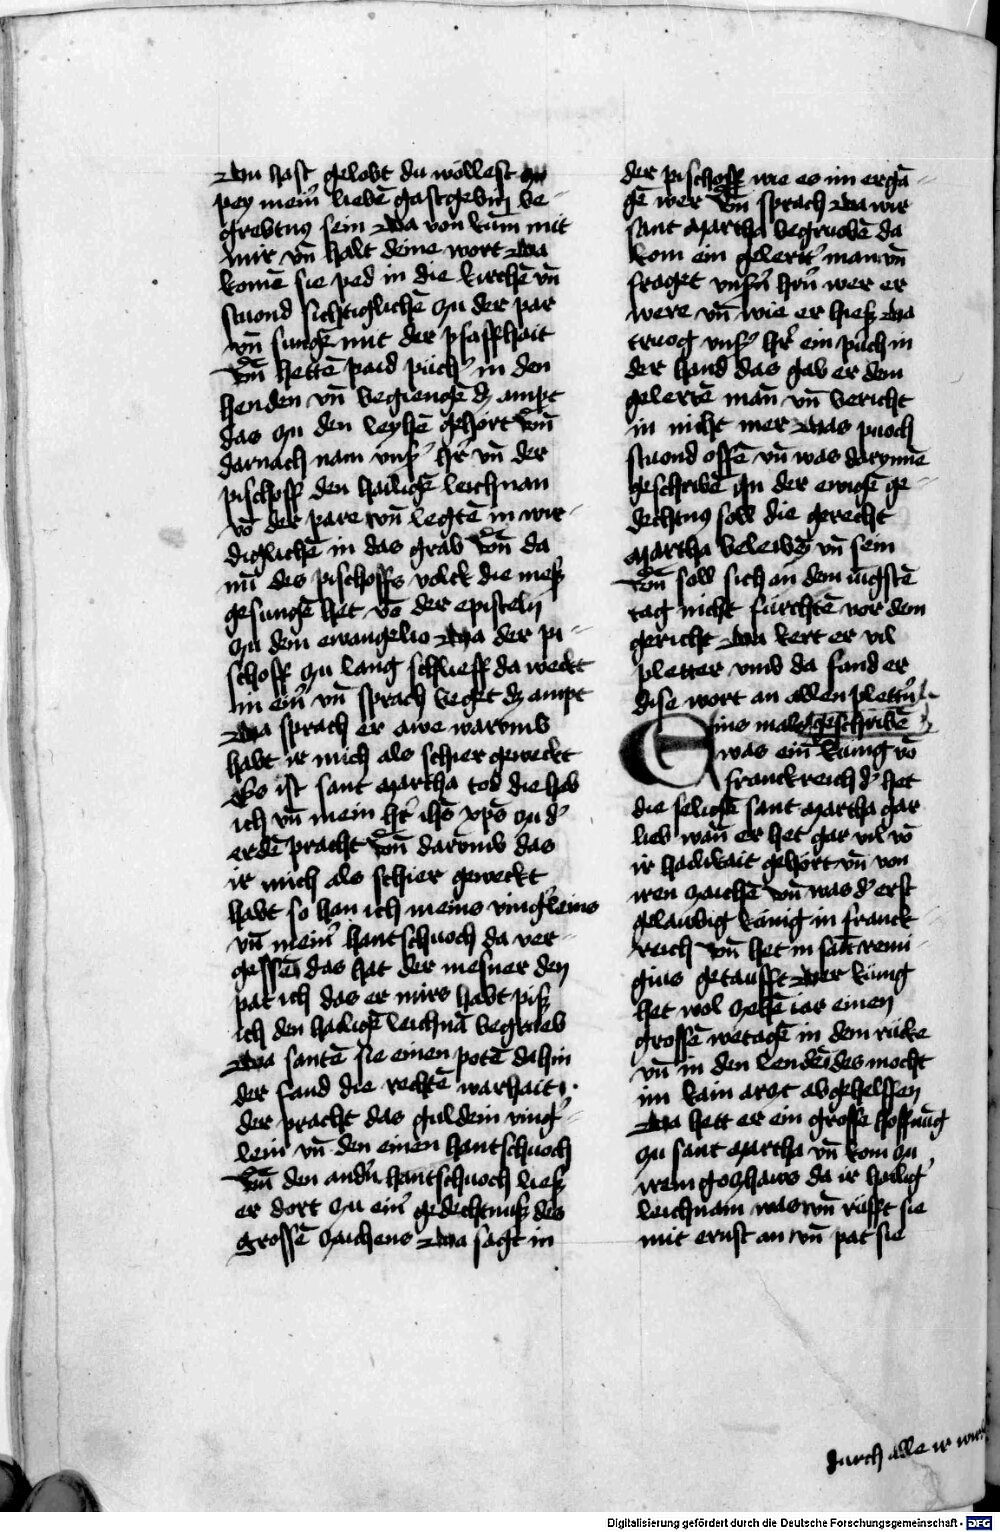 Du hast gelobt du wöllest
pey meinˀ liebē gastgebin be-
grebtnus sein Da von kūm mit
mir vn̄ halt deine wort Da
komē sie ped in die kirchē vn̄
stuond sichtiglichē zu der par
vn̄ sungē mit der pfaffhait
Vn̄ hettē paid püchˀ in den
henden vn̄ begiengē dz ampt
das zu den leyhē gehört Vn̄
darnach nam vnsˀ hr̄ vn̄ der
pischoff den hailigē leichnan
vō der pare vn̄ legtē in wir-
diglichē in das grab Vn̄ da
nū des pischoffs volck die meß
gesungē het vō der episteln
zu dem ewangelio Da der pi-
schoff zu lang schlieff da weckt
in einˀ vn̄ sprach beget dz ampt
Da sprach er awe warvmb
habt ir mich als schier geweckt
Es ist sant Martha tod die hab
ich vn̄ mein hr̄ ihs̄ xps̄ zu dˀ
erdē pracht Vn̄ darvmb das
ir mich als schier geweckt
habt so han ich meins vingˀleins
vn̄ meinˀ hantschuoch da ver-
gessē das hat der mesner den
pat ich das er mirs habt piß
ich den hailigē leichnā begrueb
Da santē sie einen potē dahin
der fand die rechtē warhait
der pracht das guldein vingˀ-
lein vn̄ den einen hantschuoch
Vn̄ den andˀn hantschuoch ließ
er dort zu einˀ gedechtnuß des
grossē zaichens Da sagt in
der pischoff wie es im ergā-
gē wer Vn̄ sprach Da wir
sant Martha begruobē da
kom ein gelertˀ man vn̄
fraget vnsˀn hr̄n wer er
were vn̄ wie er hieß Da
truog vnsˀ hr̄ ein puch in
der hand das gab er dem
gelertē man̄ vn̄ bericht
in nicht mer Das puoch
stuond offē vn̄ was darynnē
geschribē In der ewigē ge-
dechtnus soll die gerecht
Martha beleibē vn̄ sein
Vn̄ soll sich an dem iūgstē
tag nicht fürchtē vor dem
gericht Da kert er vil
pletter vmb da fand er
dise wort an allen plettˀn
geschribē
Eins mals
was ein kunig vō
franckreich dˀ het
die seligē sant Martha gar
lieb wān er het gar vil vō
ir hailikait gehört vn̄ von
iren zaichē Vn̄ was dˀ erst
gelaubig künig in franck-
reich Vn̄ het in sāt remi-
gius getaufft Der künig
het wol zehē iar einen
grossē wetagē in dem rücke
vn̄ in den lendē des mocht
im kain arzt abgehelffen
Da hett er ein grosse hoffnūg
zu sant Martha vn̄ kom zu
irem gozhaws da ir hailigˀ
leichnam was vn̄ rüfft sie
mit ernst an vn̄ pat sie
durch alle ir
Digitalisierung gefördert durch die Deutsche Forschungsgemeinschaft - DFG